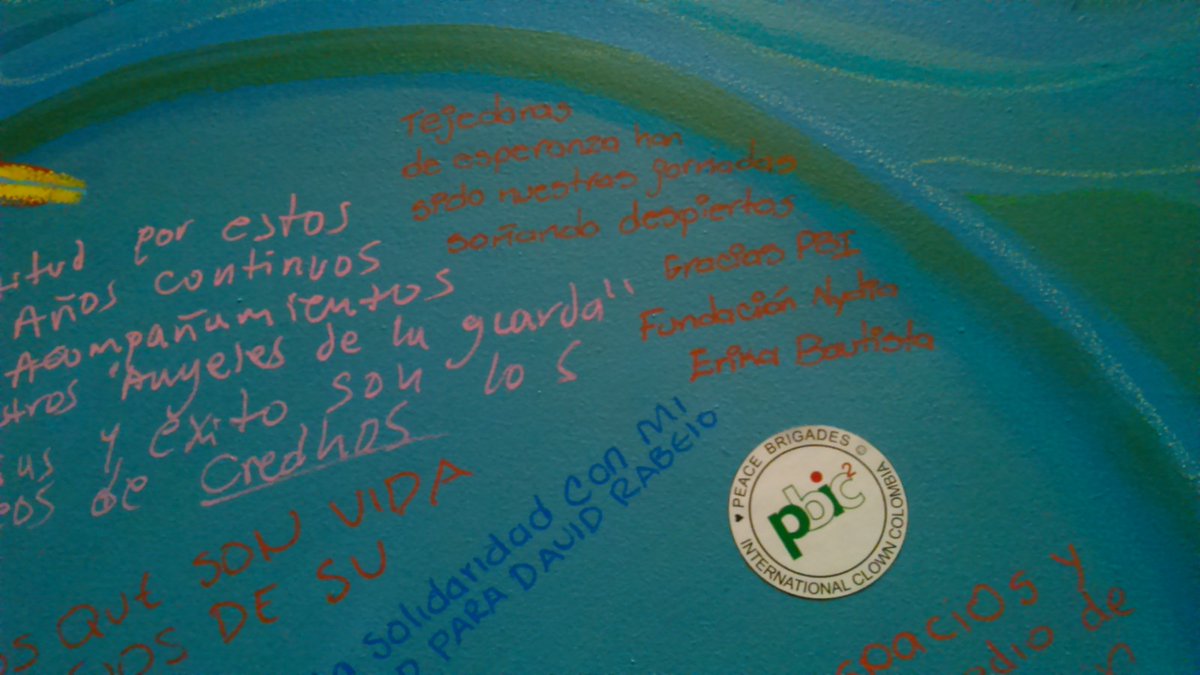 Tejedoras
de esperanza han
sido nuestras jornadas
soñando despiertas
Gracias PBI
Fundación Nydia
Erika Bautista
por estos
Años continuos
Acompañumientos
"Angeles de la guarda"
y éxito son los
de Credhos
QUE SON VIDA
DE SU
solidaridad con mi
PARA DAVID RABELO
PEACE BRIGADES ©
pbic2
INTERNATIONAL CLOWN COLOMBIA
y
de